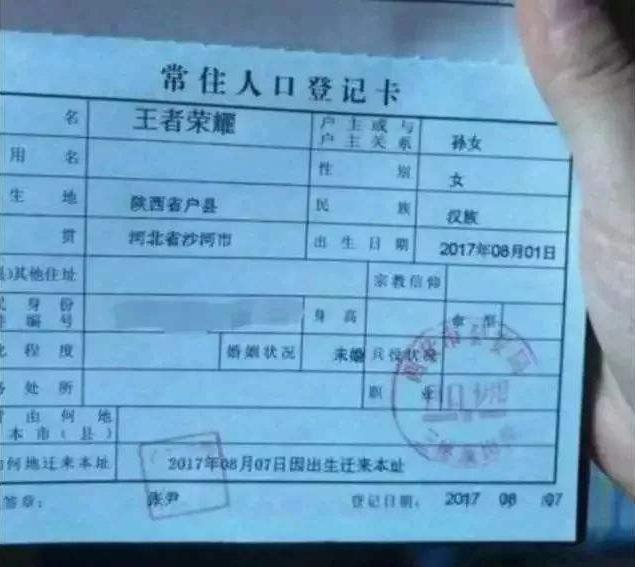 常住人口登记卡
名 王者荣耀 户主或与户主关系 孙女
用名 性别 女
生地 陕西省户县 民族 汉族
贯 河北省沙河市 出生日期 2017年08月01日
其他住址 宗教信仰
身份 身高 血型
编号
程度 婚姻状况 未婚 兵役状况
处所 职业
由何地
本市(县)
何地迁来本址 2017年08月07日因出生迁来本址
签章: 张尹 登记日期: 2017 08 07